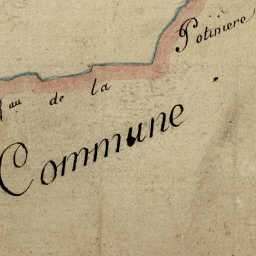 Rau de la Potinière
Commune